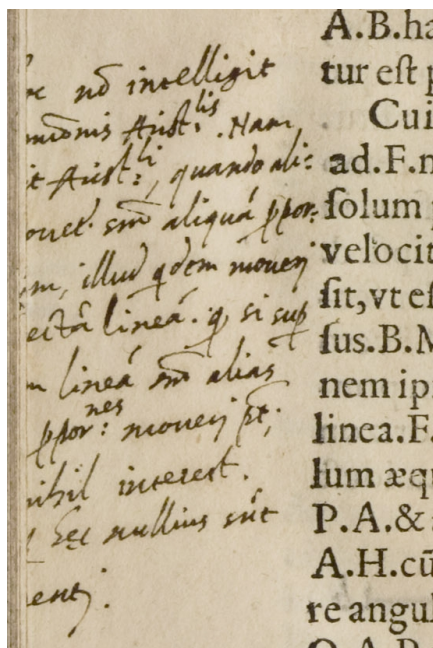 nō intelligit
Arist:lis. Nam
Arist:li, quando ali:
sm̄ aliquā ꝓpor:
illud qdem moueri
lineā. si sup
lineā sm̄ alias
ꝓpor:nes moueri pt;
nihil interest.
nullius sūt
A.B.ha
tur eſt p
Cui
ad.F.n
ſolum
velocit
ſit,vt eſ
ſus.B.M
nem ip
linea.F.
lum æqu
P.A.&
A.H.cū
re angul